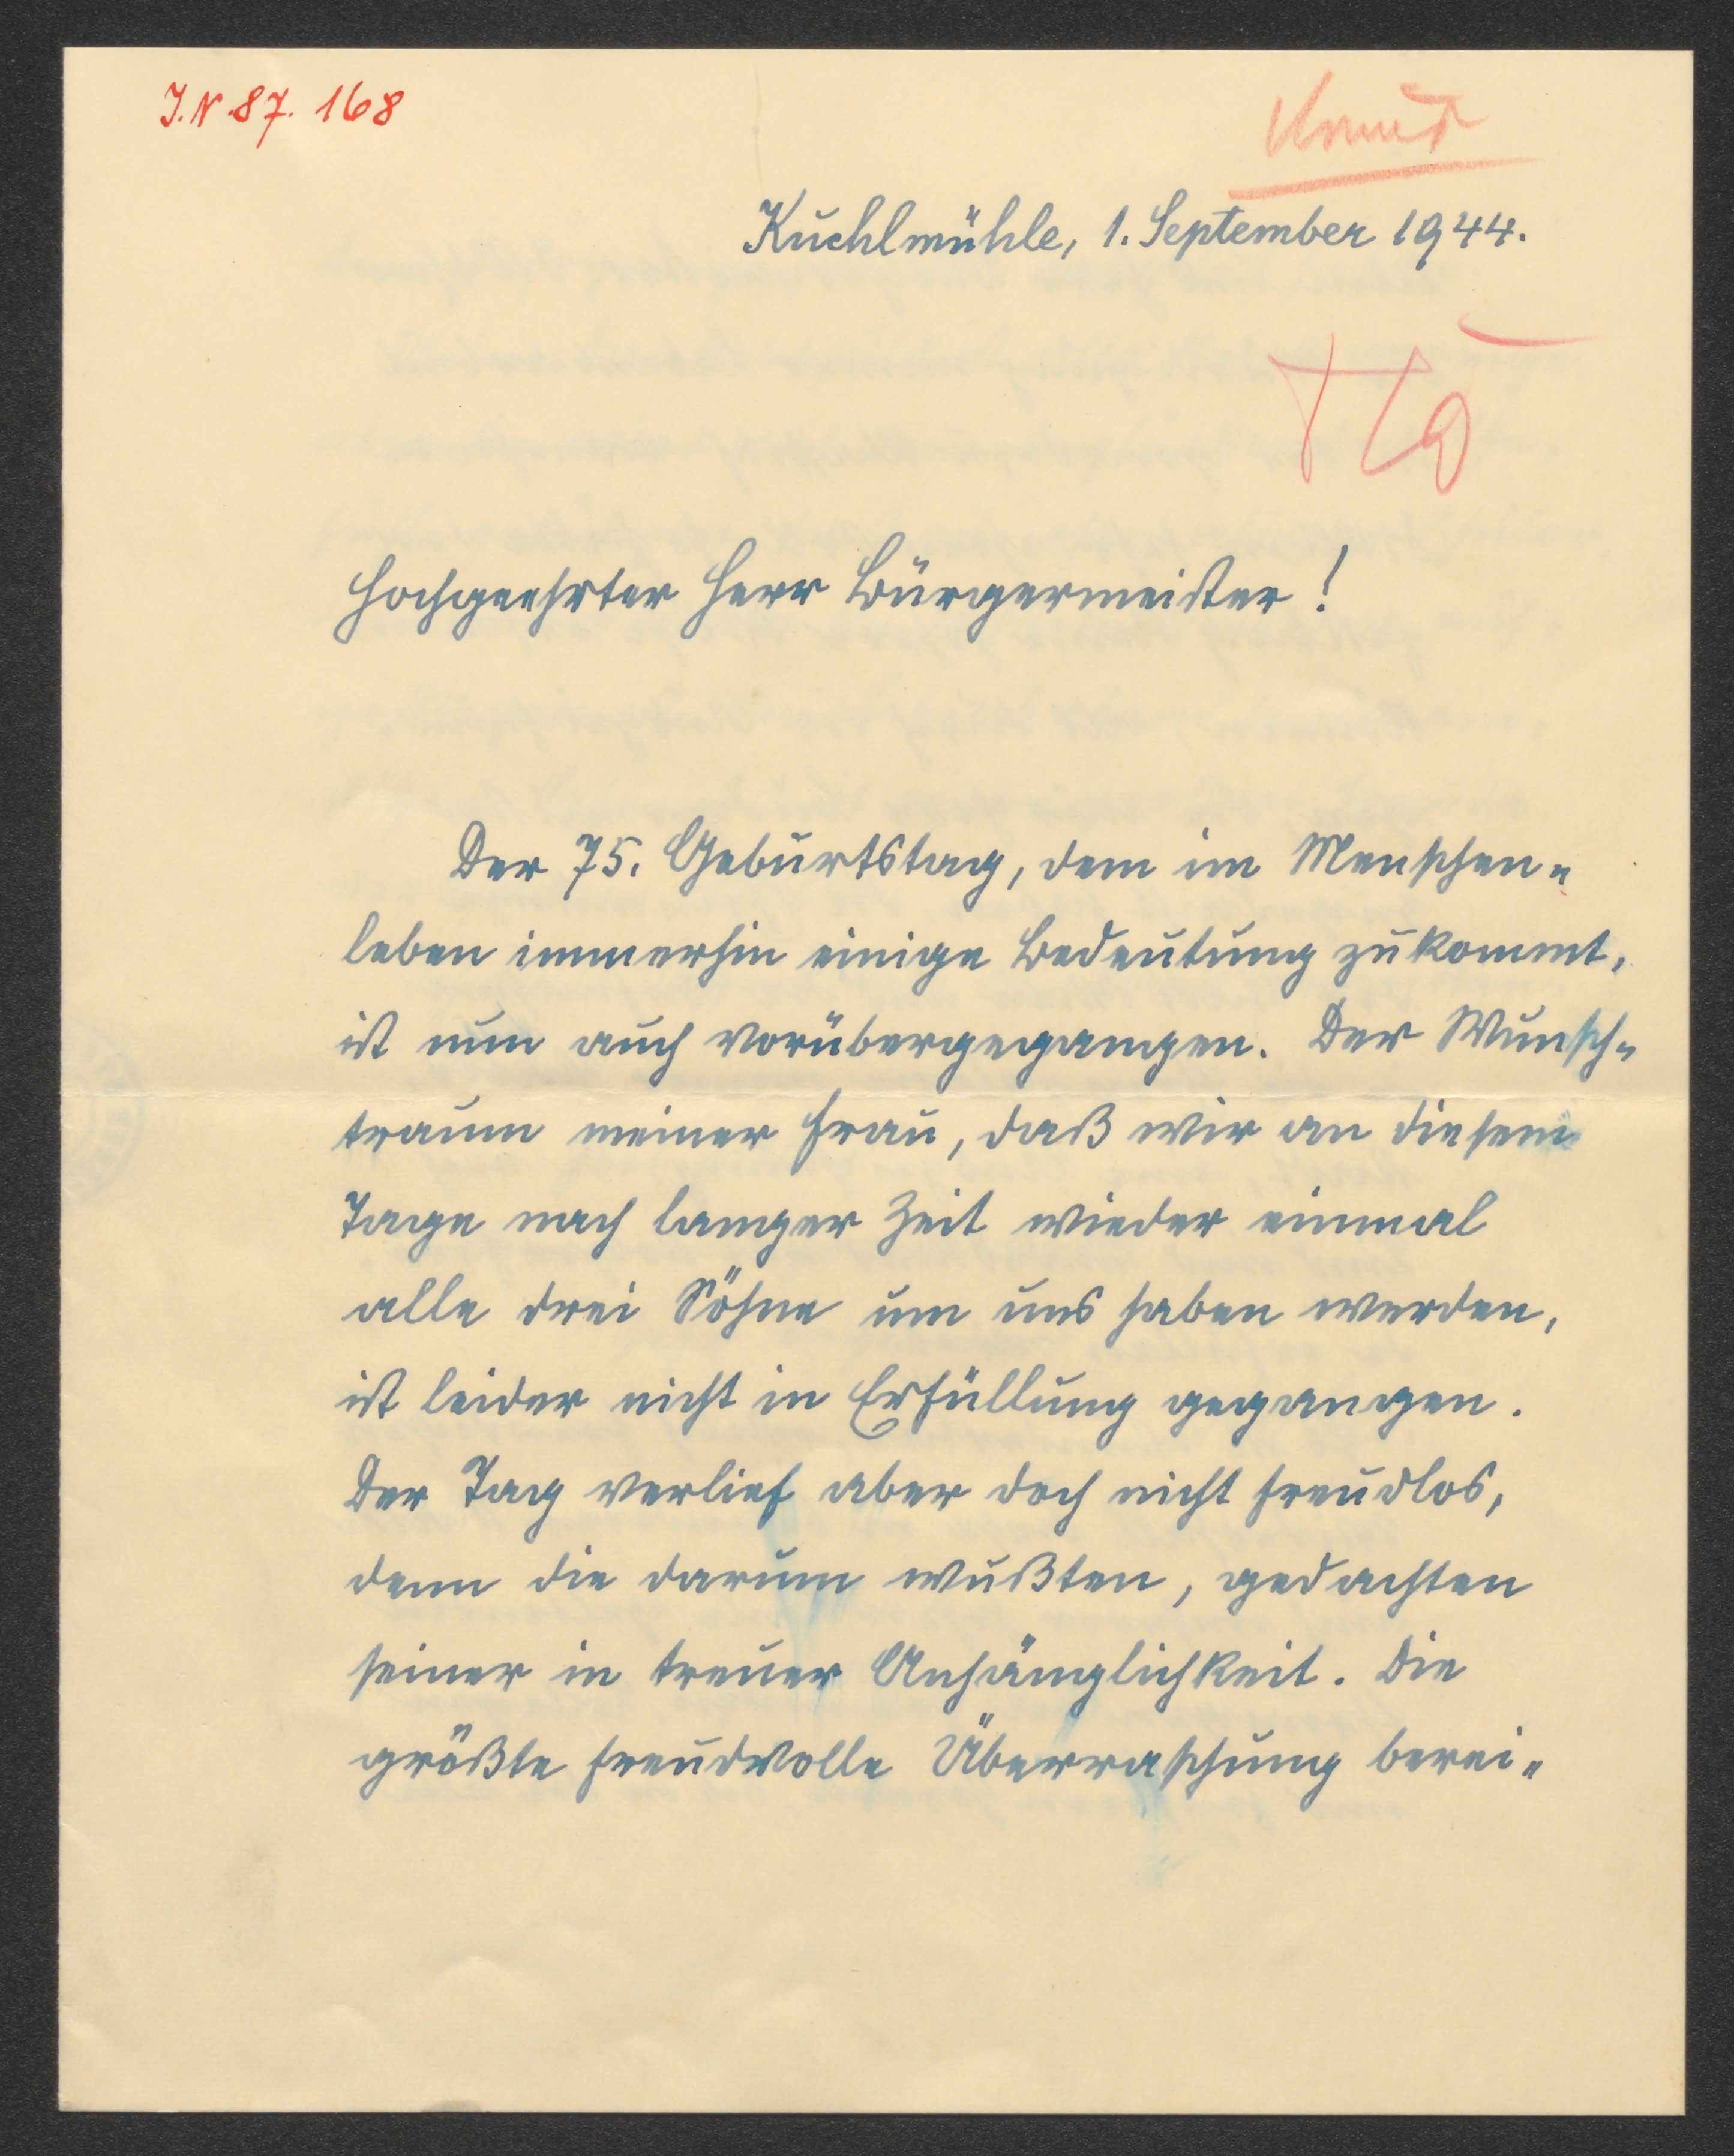 J.N.87.168
Kuchlmühle, 1. September 1944.
Hochgeehrter Herr Bürgermeister!
Der 75. Geburtstag, dem im Menschen=
leben immerhin einige Bedeutung zukommt,
ist nun auch vorübergegangen. Der Wunsch=
traum meiner Frau, daß wir an diesem
Tage nach langer Zeit wieder einmal
alle drei Söhne um uns haben werden,
ist leider nicht in Erfüllung gegangen.
Der Tag verlief aber doch nicht freudlos,
denn die darum wußten, gedachten
seiner in treuer Anhänglichkeit. Die
größte freudvolle Überraschung berei=